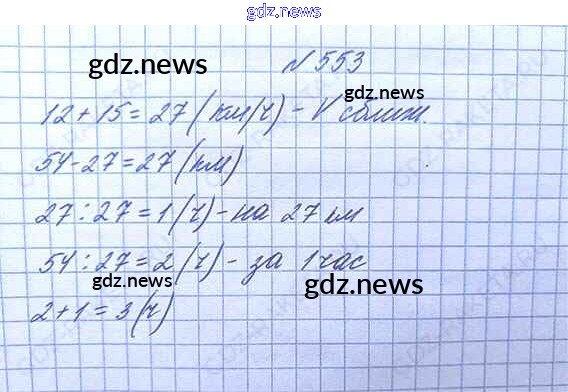 gdz.news
gdz.news
№553
gdz.news
12+15=27(км/ч)-V сближ.
54-27=27(км)
27:27=1(ч)-на 27 км
54:27=2(ч)-за 1 час
gdz.news
gdz.news
2+1=3(ч)